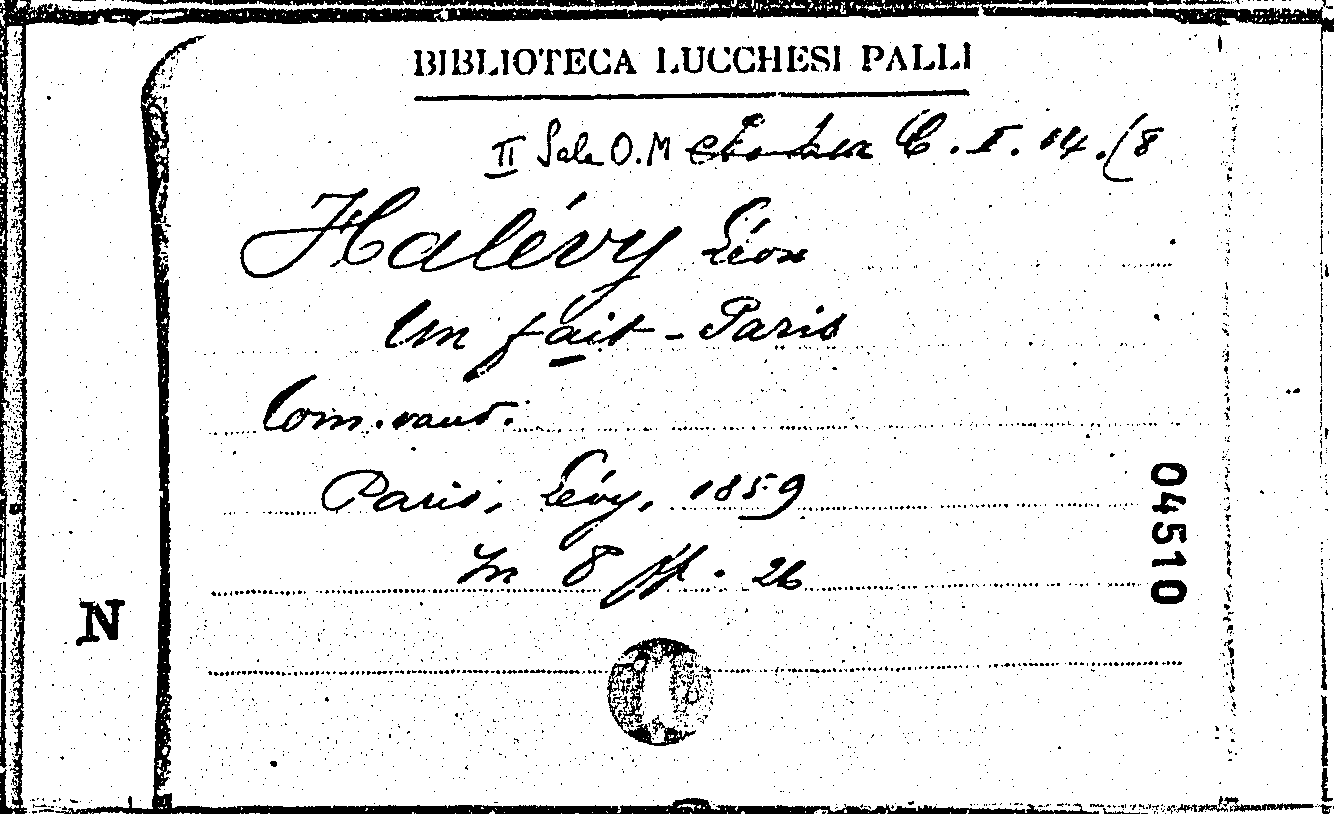 BIBLIOTECA LUCCHESI PALLI
II Sala O.M C. I. 14.(8
Halévy Léon
Un fait-Paris
Com. vaud.
Paris, Lévy, 1859
In 8 pp. 26
04510
N